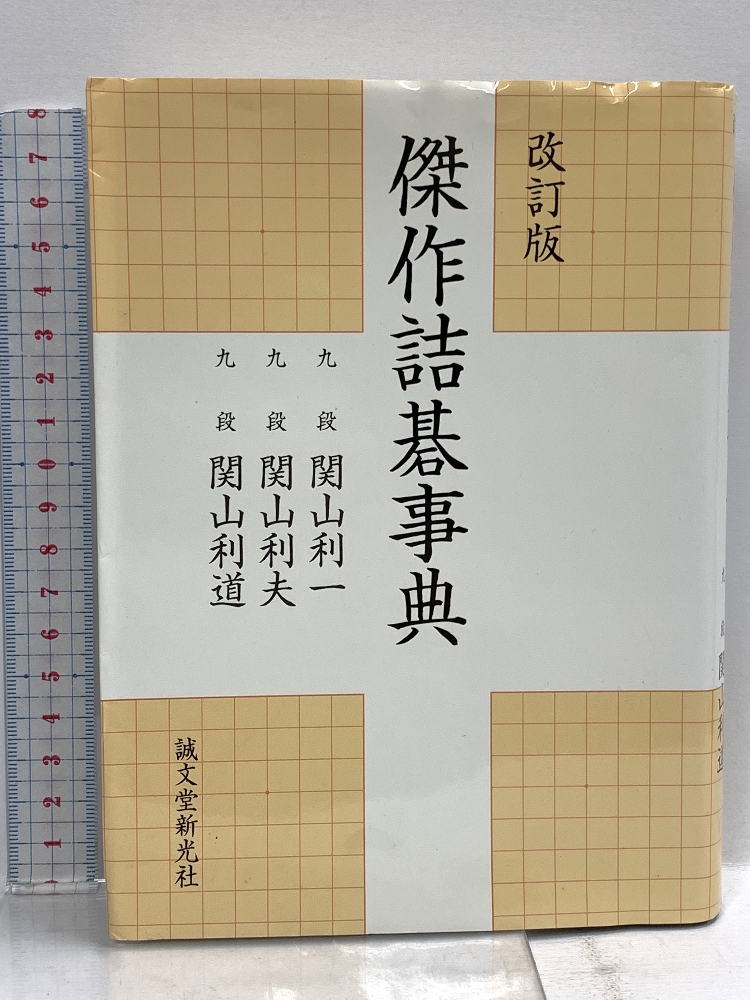 改訂版
傑作詰碁事典
九段 関山利一
九段 関山利夫
九段 関山利道
誠文堂新光社
8
7
6
5
4
3
2
1
0
9
8
7
6
5
4
3
2
1
関山利道